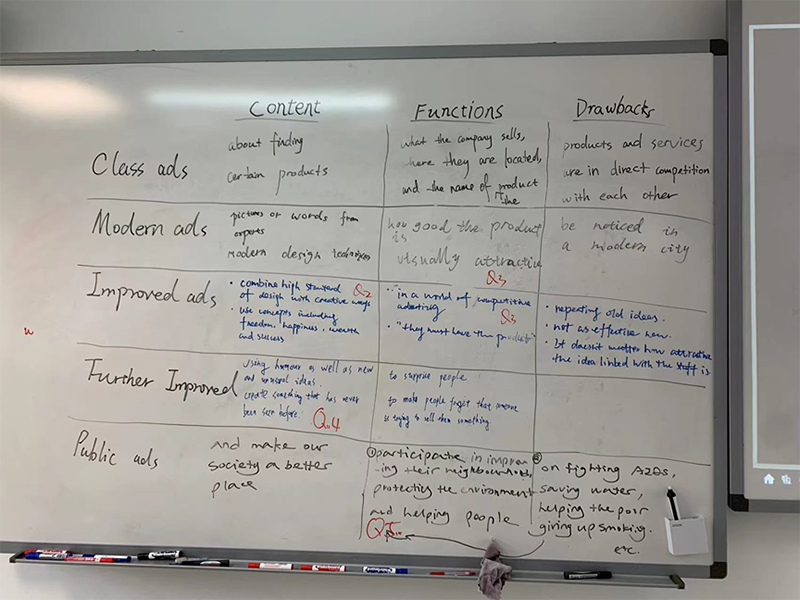 Content Functions Drawbacks
Class ads
about finding
certain products
what the company sells,
where they are located,
and the name of product
the
products and services
are in direct competition
with each other
Modern ads
pictures or words from
experts
modern design techniques
how good the product
is
visually attractive
Q3
be noticed in
a modern city
Improved ads
• combine high standard
of design with creative ways
• use concepts including
freedom, happiness, wealth
and success
Q2
• "in a world of competitive
advertising
• "they must have the product"
Q3
• repeating old ideas.
• not as effective now.
• It doesn't matter how attractive
the idea linked with the stuff is
Further Improved
using humour as well as new
and unusual ideas.
create something that has never
been seen before.
Q4
to surprise people
to make people forget that someone
is trying to sell them something
Public ads
and make our
society a better
place
① participate in improv-
ing their neighbourhoods,
protecting the environment
and helping people
Q5
② on fighting AIDS,
saving water,
helping the poor
giving up smoking.
etc.